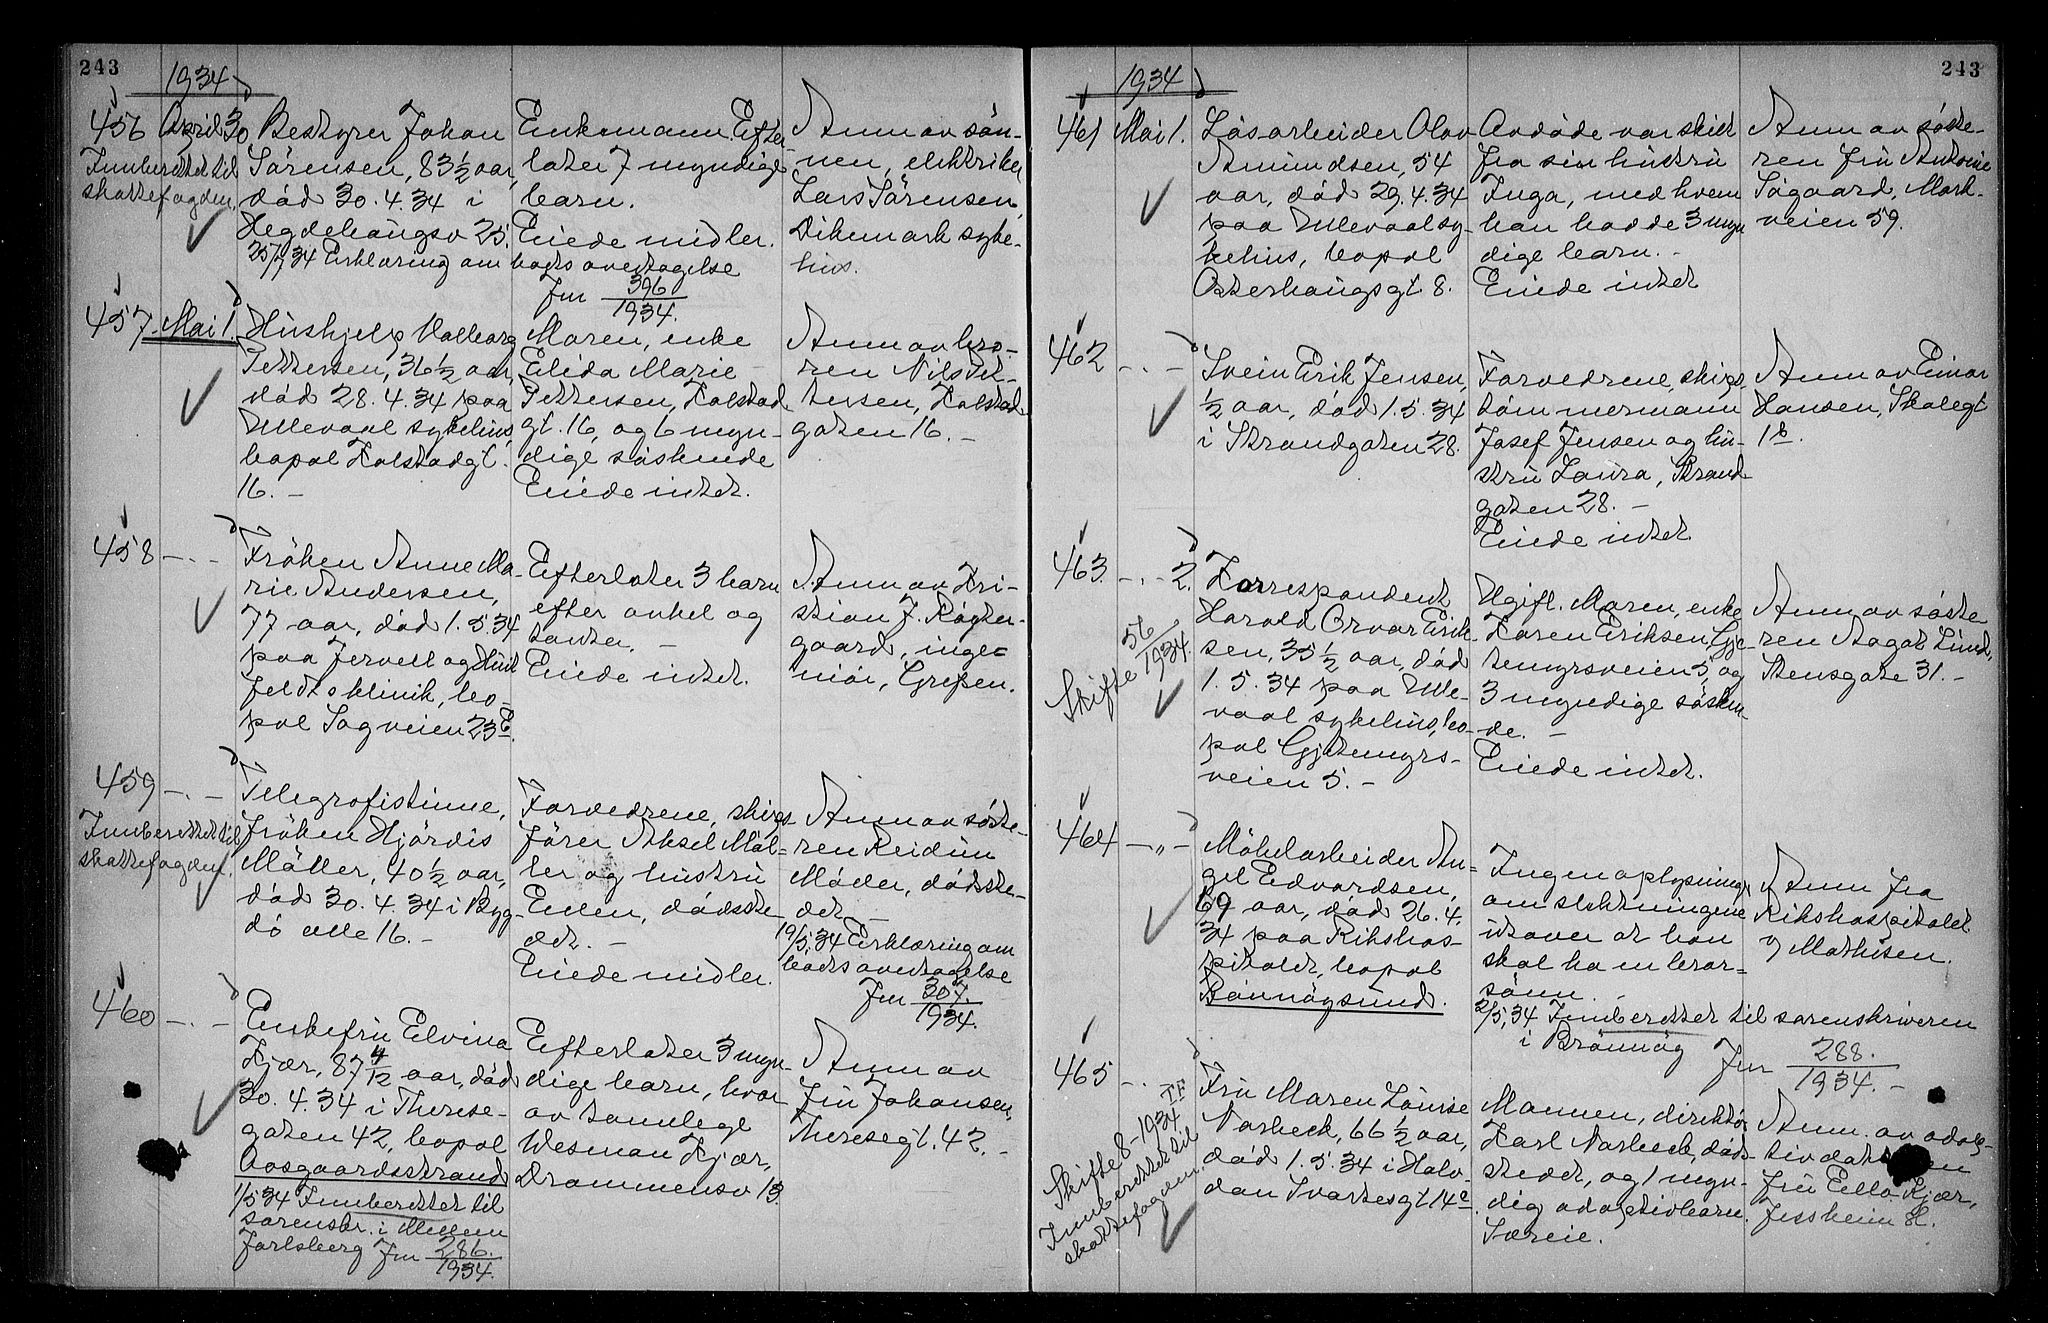 243
1934
456 April 30. Bestyrer Johan
Sörensen, 83 1/2 aar,
död 30.4.34 i
Hegdehaugsv 25.
Innberettet til
skattefogden.
Enkemann. Efter-
later 7 myndige
barn.
Eiede midler.
25/7 34 Erklæring om boets overtagelse
Jnr 396/1934.
Anm av søn-
nen, elektriker
Lars Sörensen,
Dikemark syke-
hus.
457. Mai 1. Hushjelp Valborg
Pettersen, 36 1/2 aar,
död 28.4.34 paa
Ullevaal sykehus,
bopæl Falstadgt.
16. -
Moren, enke
Elida Marie
Pettersen, Falstad
gt. 16, og 6 myn-
dige söskende
Eiede intet.
Anm av bro-
ren Nils Pet-
tersen, Falstad
gaten 16. -
458 -.- Fröken Anne Ma-
rie Andersen,
77 aar, död 1.5.34
paa Jervell og Hind
feldts klinik, bo-
pæl Sagveien 23 E.
Efterlater 3 barn
efter onkel og
tanter. -
Eiede intet.
Anm av Kri-
stian J. Kogter-
gaard, inge-
niör, Grefsen.
459 -.- Telegrafistinne,
fröken Hjördis
Möller, 40 1/2 aar,
död 30.4.34 i Byg-
dö alle 16. -
Innberettet til
skattefogden.
Forældrene, skips
förer Aksel Möl-
ler og hustru
Ellen, dödsste-
det. -
Eiede midler.
Anm av söste-
ren Reidun
Möller, dödsste-
det. -
19/5 34 Erklæring om
boets overtagelse
Jnr 307./1934.
460 -.- Enkefru Elvina
Kjær, 87 4/12 aar, död
30.4.34 i Therese-
gaten 42, bopæl
Aasgaardsstrand
1/5 34 Innberettet til
sorenskr. i Mellem
Jarlsberg Jnr 286./1934.
Efterlater 3 myn-
dige barn, hvor
av
Wesman Kjær,
Drammensv 13.
Anm av
fru Johansen,
Theresegt. 42. -
243
1934
461 Mai 1. Løsarbeider Olav
Amundsen, 54
aar, död 29.4.34
paa Ullevaal sy-
kehus, bopæl
Osterhausgt. 8.
Avdöde var skilt
fra sin hustru
Inga, med hvem
han hadde 3 myn
dige barn. -
Eiede intet
Anm av söste-
ren fru Antonie
Sögaard, Mark-
veien 59.
462 -.- Svein Erik Jensen,
1/2 aar, död 1.5.34
i Strandgaten 28.
Forældrene, skips
tömmermann
Josef Jensen og hu-
stru Laura, Strand
gaten 28. -
Eiede intet
Anm av Einar
Hansen, Skolegt
1 b.
463. -.- 2. Korrespondent
Harald Orvar Erik-
sen, 35 1/2 aar, död
1.5.34 paa Ulle-
vaal sykehus, bo-
pæl Gjetemyrs-
veien 5. -
Skifte 56/1934.
Ugift. Moren, enke
Karen Eriksen, Gje-
temyrsveien 5, og
3 myndige sösken-
de. -
Eiede intet.
Anm av söste
ren Aagot Lund,
Stensgate 31. -
464 -„- Möbelarbeider An-
gel Edvardsen,
69 aar, död 26.4.
34 paa Rikshos-
pitalet, bopæl
Brönnöysund.
Ingen oplysninger
om slektningene
utover at han
skal ha en bror-
sönn.
2/5.34 Innberettet til sorenskriveren
i Brönnöy Jnr 288./1934. -
Anm fra
Rikshospitalet
v Mathisen.
465 -.- Fru Maren Louise
Narbeck, 66 1/2 aar,
död 1.5.34 i Halv-
dan Svartesgt 14 c
Skifte 8-1934. TF
Innberettet til
skattefogden.
Mannen, direktör
Karl Narbeck, döds-
stedet, og 1 myn-
dig adoptivbarn.
Særeie.
Anm. av adop-
tivdatteren
fru Ella Kjær,
Jessheim st.